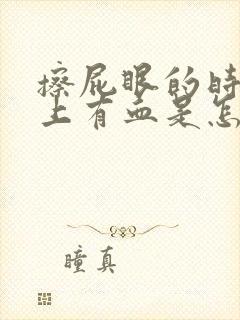 擦屁眼的时
上有血是怎
瞳真